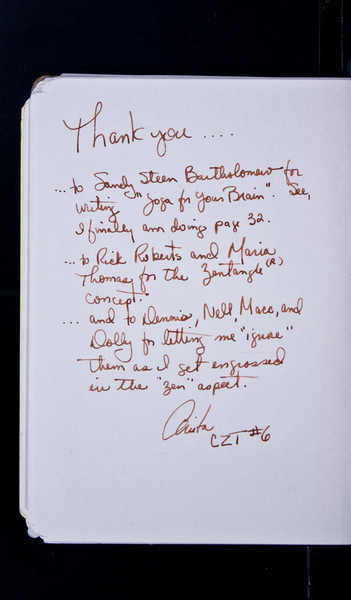 Thank you ....
... to Sandy Steen Bartholomew for
writing "Yoga for Your Brain". See,
I finally am doing page 32.
... to Rick Roberts and Maria
Thomas for the Zentangle (R)
concept.
.... and to Dennis, Nell, Maco, and
Dolly for letting me "ignore"
them as I get engrossed
in the "zen" aspect.
Anita
CZT #6